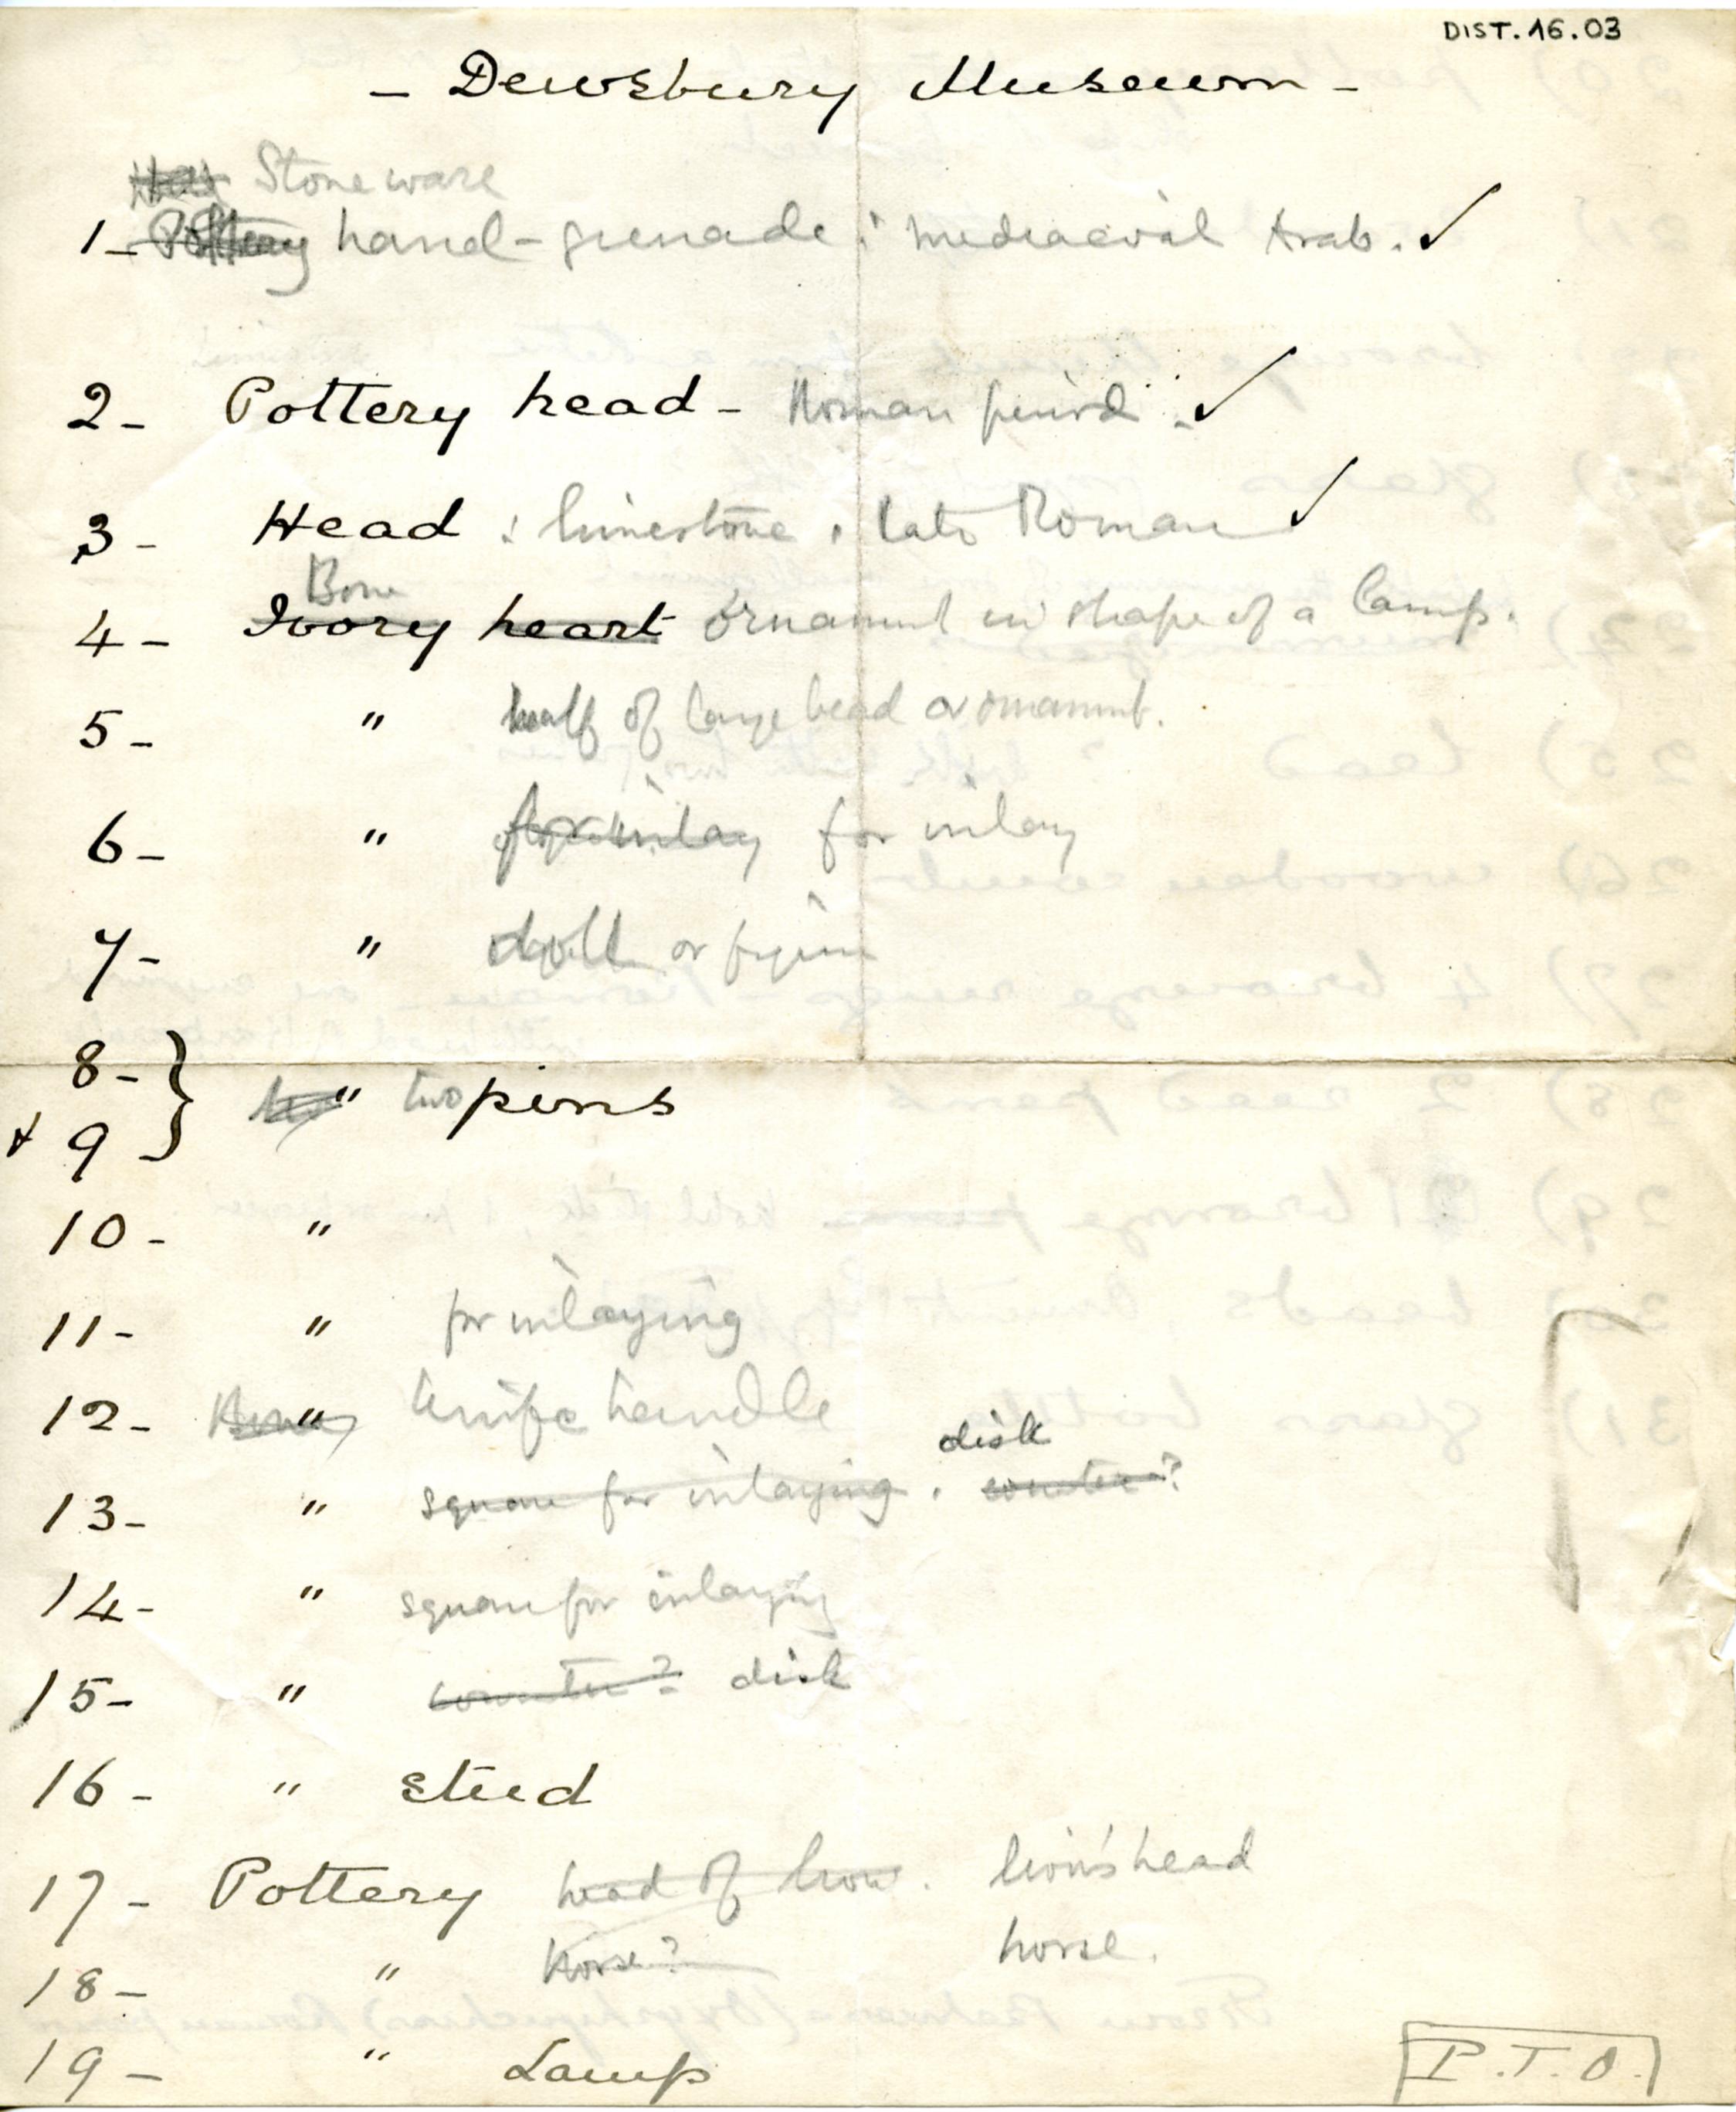 DIST.16.03
- Dewsbury Museum -
Stoneware
1- Pottery hand-grenade : mediaeval Arab. ✓
2- Pottery head - Roman period. ✓
3- Head : limestone . late Roman ✓
Bone
4- Ivory heart ornament in shape of a lamp.
5- " half of large bead or ornament.
6- " for inlay for inlay
7- " doll or figure
8-
& 9 } " two pins
10- "
11- " for inlaying
12- " knife handle
disk
13- " square for inlaying . counter?
14- " square for inlaying
15- " counter? disk
16- " stud
17- Pottery head of lion . lion's head
18- " horse? horse.
19- " Lamp
P.T.O.